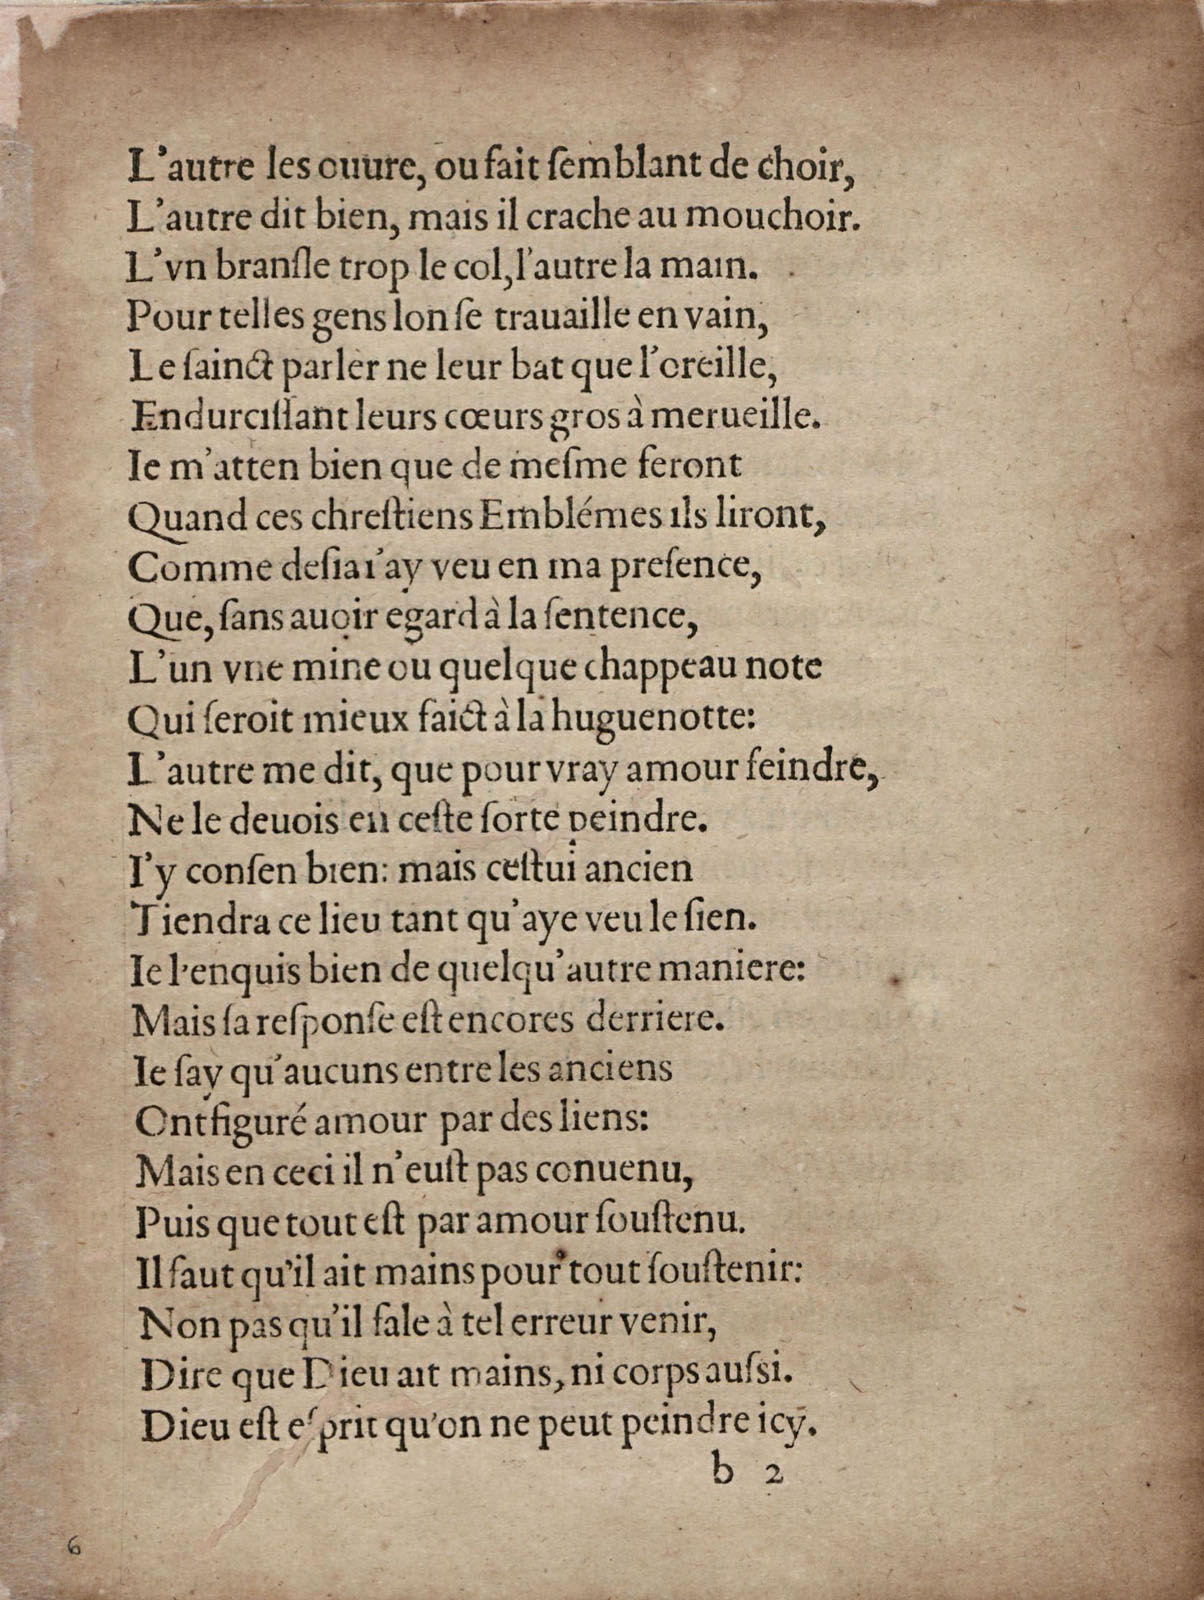 L'autre les ouure, ou fait ſemblant de choir,
L'autre dit bien, mais il crache au mouchoir.
L'vn branſle trop le col, l'autre la main.
Pour telles gens lon ſe trauaille en vain,
Le ſainct parler ne leur bat que l'oreille,
Endurciſſant leurs cœurs gros à merueille.
Ie m'atten bien que de meſme feront
Quand ces chreſtiens Emblémes ils liront,
Comme deſia i'ay veu en ma preſence,
Que, ſans auoir egard à la ſentence,
L'un vne mine ou quelque chappeau note
Qui ſeroit mieux faict à la huguenotte:
L'autre me dit, que pour vray amour feindre,
Ne le deuois en ceſte ſorte peindre.
I'y conſen bien: mais ceſtui ancien
Tiendra ce lieu tant qu'aye veu le ſien.
Ie l'enquis bien de quelqu'autre maniere:
Mais ſa reſponſe eſt encores derriere.
Ie ſay qu'aucuns entre les anciens
Ont figuré amour par des liens:
Mais en ceci il n'euſt pas conuenu,
Puis que tout eſt par amour ſouſtenu.
Il faut qu'il ait mains pour tout ſouſtenir:
Non pas qu'il fale à tel erreur venir,
Dire que Dieu ait mains, ni corps auſsi.
Dieu eſt eſprit qu'on ne peut peindre icy.
b 2
6